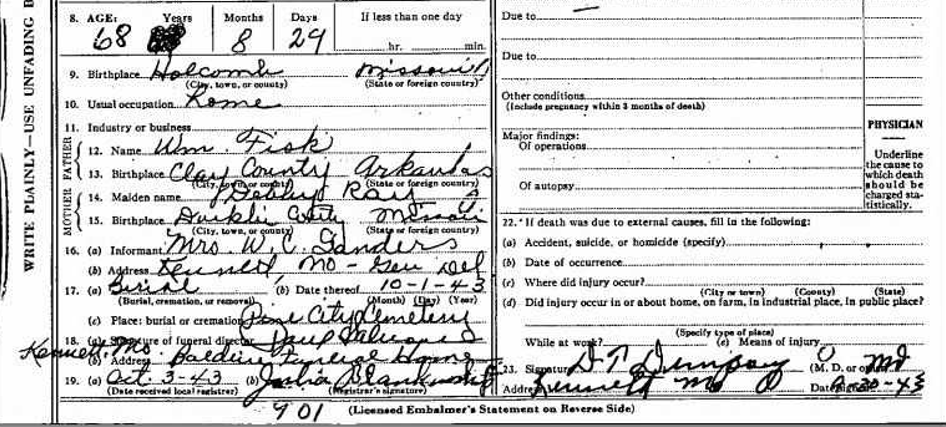 WRITE PLAINLY—USE UNFADING B
8. AGE: Years Months Days If less than one day
68 8 29 hr. min.
9. Birthplace Holcomb Missouri
(City, town, or county) (State or foreign country)
10. Usual occupation Home
11. Industry or business
FATHER
12. Name Wm. Fisk
13. Birthplace Clay County Arkansas
(City, town or county) (State or foreign country)
MOTHER
14. Maiden name Ray
15. Birthplace
(City, town, or county) (State or foreign country)
16. (a) Informant Mrs. W. C. Sanders
(b) Address Kennett, Mo - Gen Del
17. (a) Burial (b) Date thereof 10-1-43
(Burial, cremation, or removal) (Month) (Day) (Year)
(c) Place: burial or cremation City Cemetery
18. (a) Signature of funeral director
Kennett, Mo. (b) Address Baldwin Funeral Home
19. (a) Oct. 3-43 (b) Julia
(Date received local registrar) (Registrar's signature)
901
(Licensed Embalmer's Statement on Reverse Side)
Due to
Due to
Other conditions
(Include pregnancy within 3 months of death)
Major findings:
Of operations
Of autopsy
PHYSICIAN
Underline
the cause to
which death
should be
charged sta-
tistically.
22. If death was due to external causes, fill in the following:
(a) Accident, suicide, or homicide (specify)
(b) Date of occurrence
(c) Where did injury occur?
(City or town) (County) (State)
(d) Did injury occur in or about home, on farm, in industrial place, in public place?
(Specify type of place)
While at work? (e) Means of injury
23. Signature (M. D. or other) MD
Address Kennett Mo Date signed